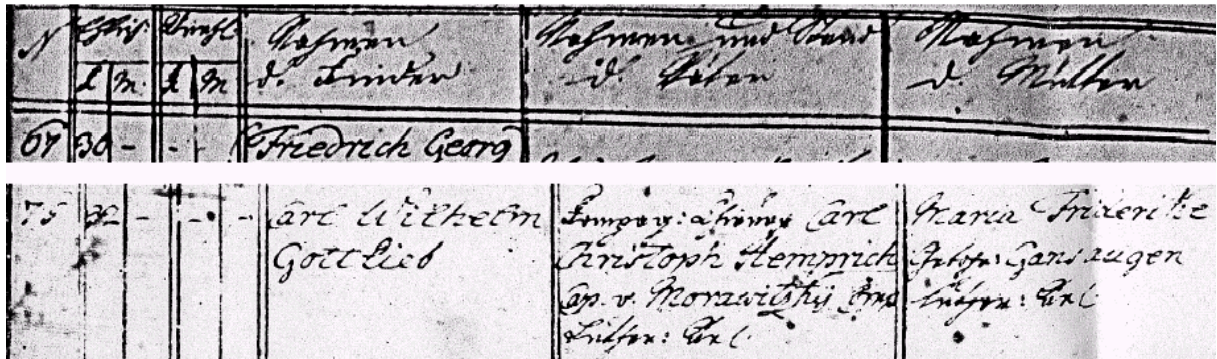 N Ehlich: Unehl:
K M. K M
Nahmen
d. Kinder
Nahmen und Stand
d. Väter
Nahmen
d. Mütter
67 30 - - - Friedrich Georg
75 32 - - - Carl Wilhelm
Gottlieb
Carl
Christoph Hemprich
Cap. v. Morawitzky
Luther:
Maria Friderike
Gansaugen
Luther: